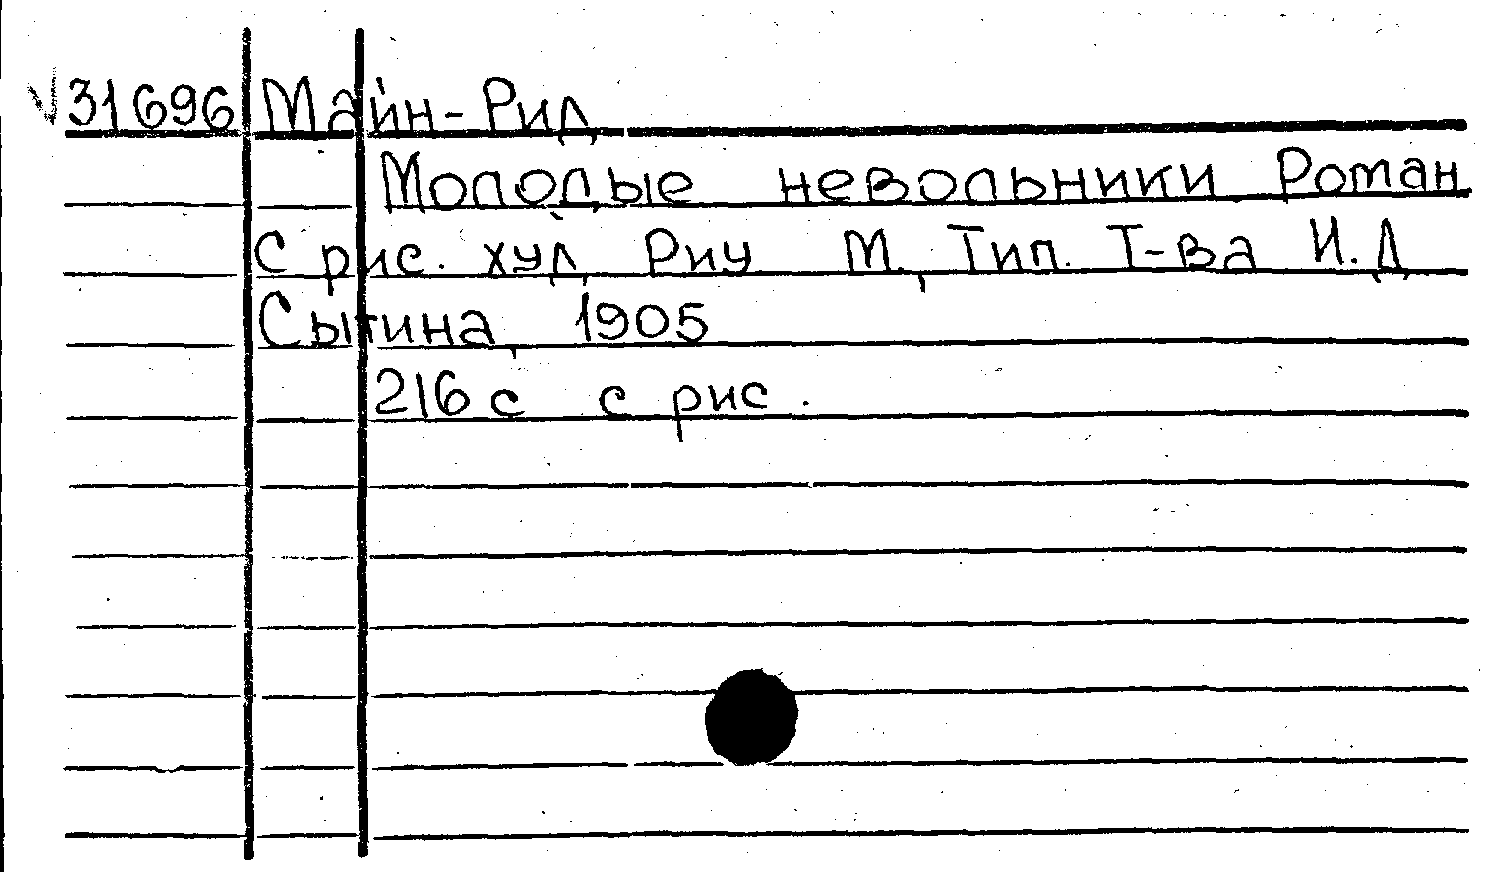 31696 Майн-Рид
Молодые невольники Роман
С рис. худ Риу М., Тип. Т-ва И.Д
Сытина, 1905
216 с с рис.